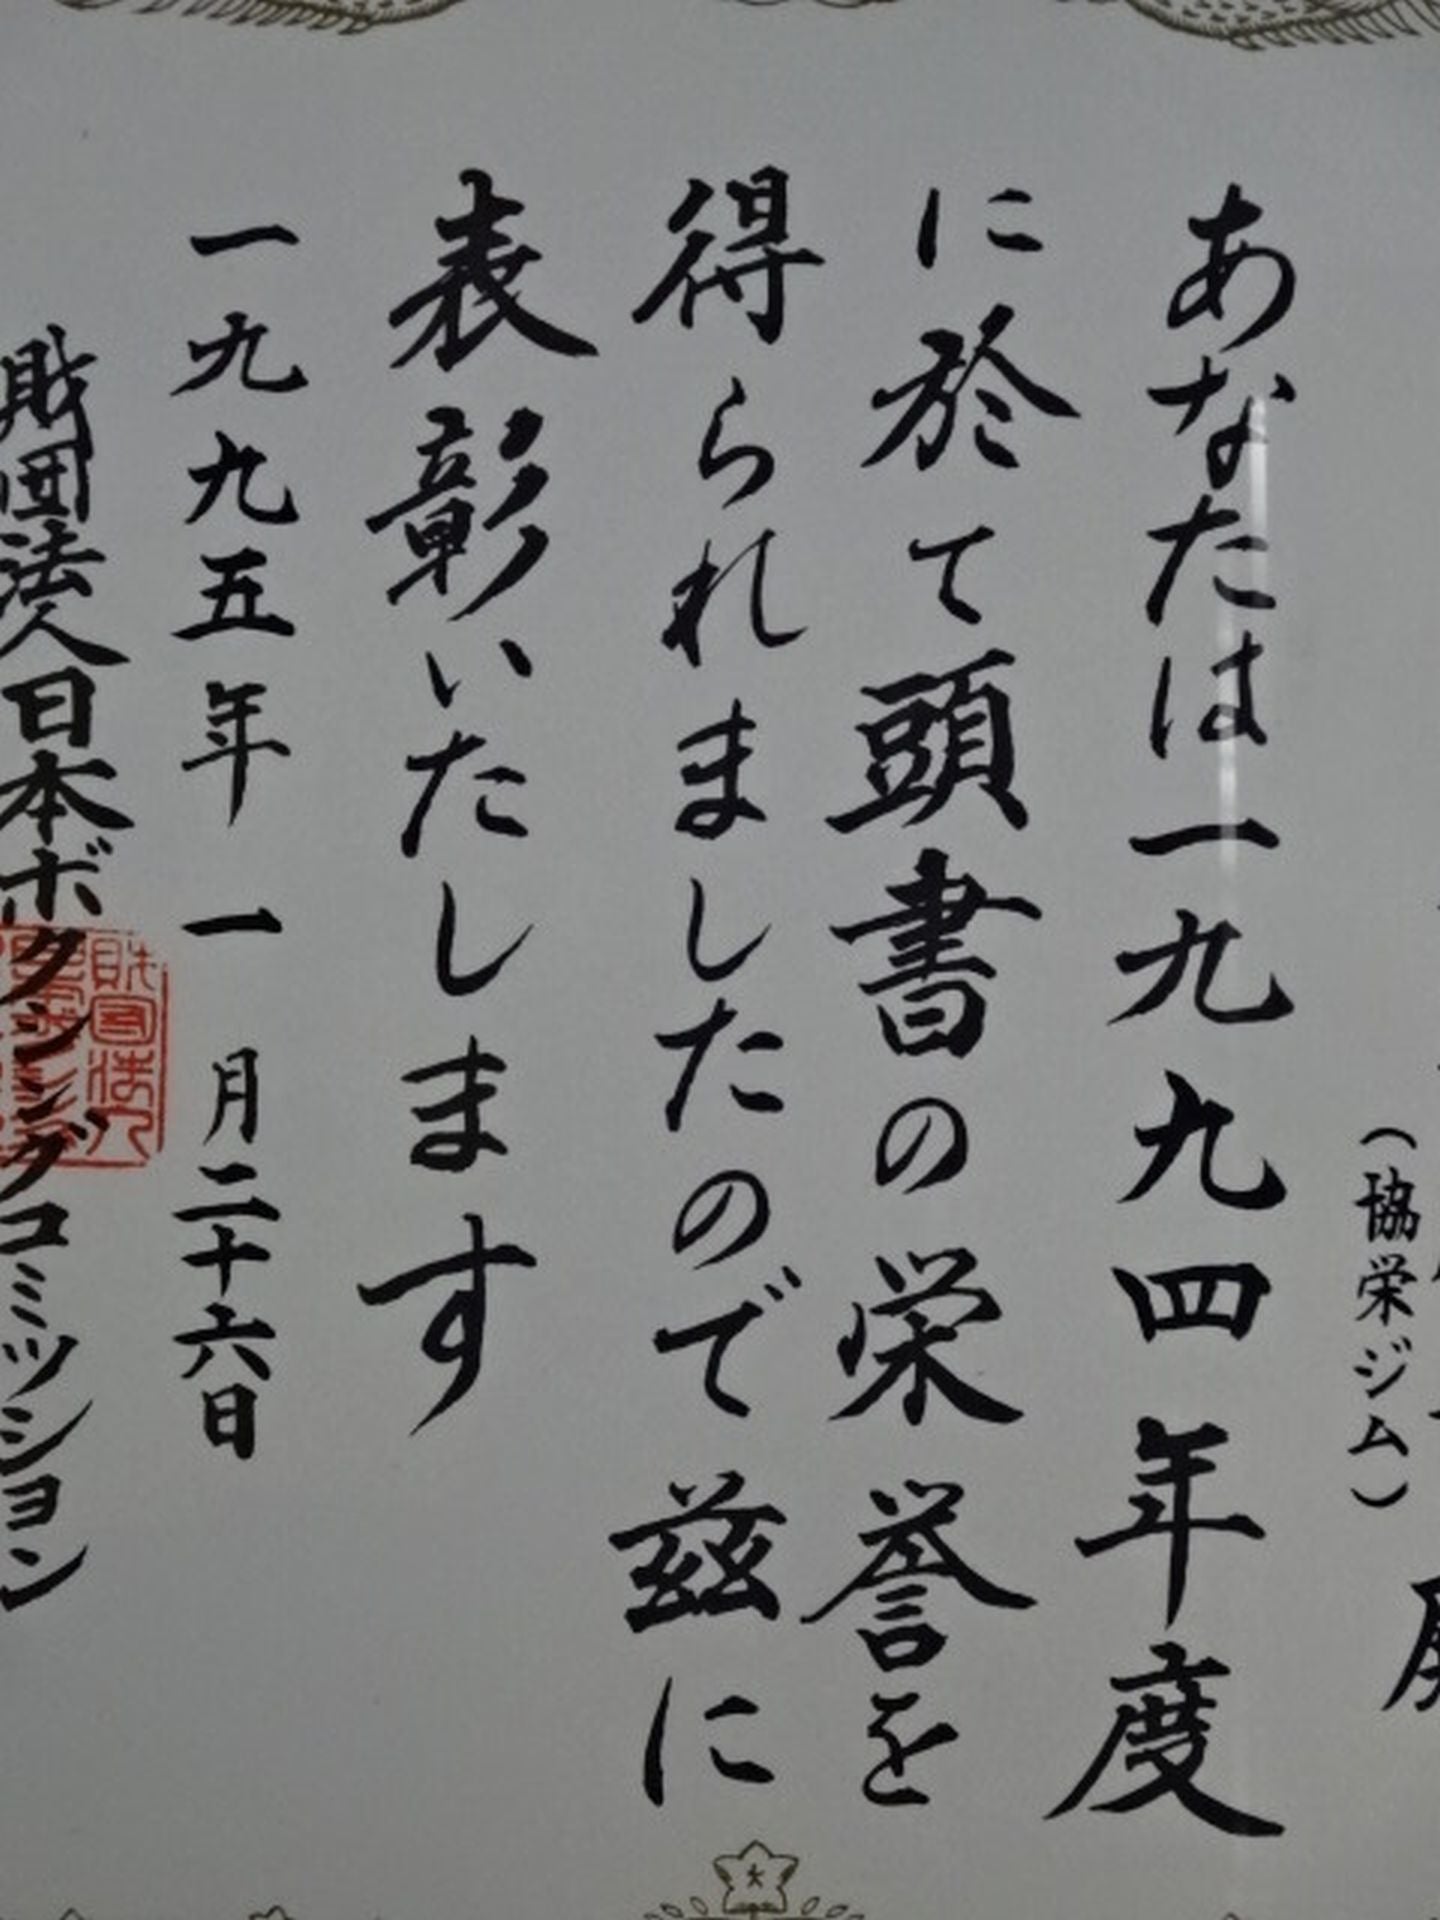 （協栄ジム）
あなたは一九九四年度
に於て頭書の栄誉を
得られましたので茲に
表彰いたします
一九九五年一月二十六日
財団法人日本ボクシングコミッション